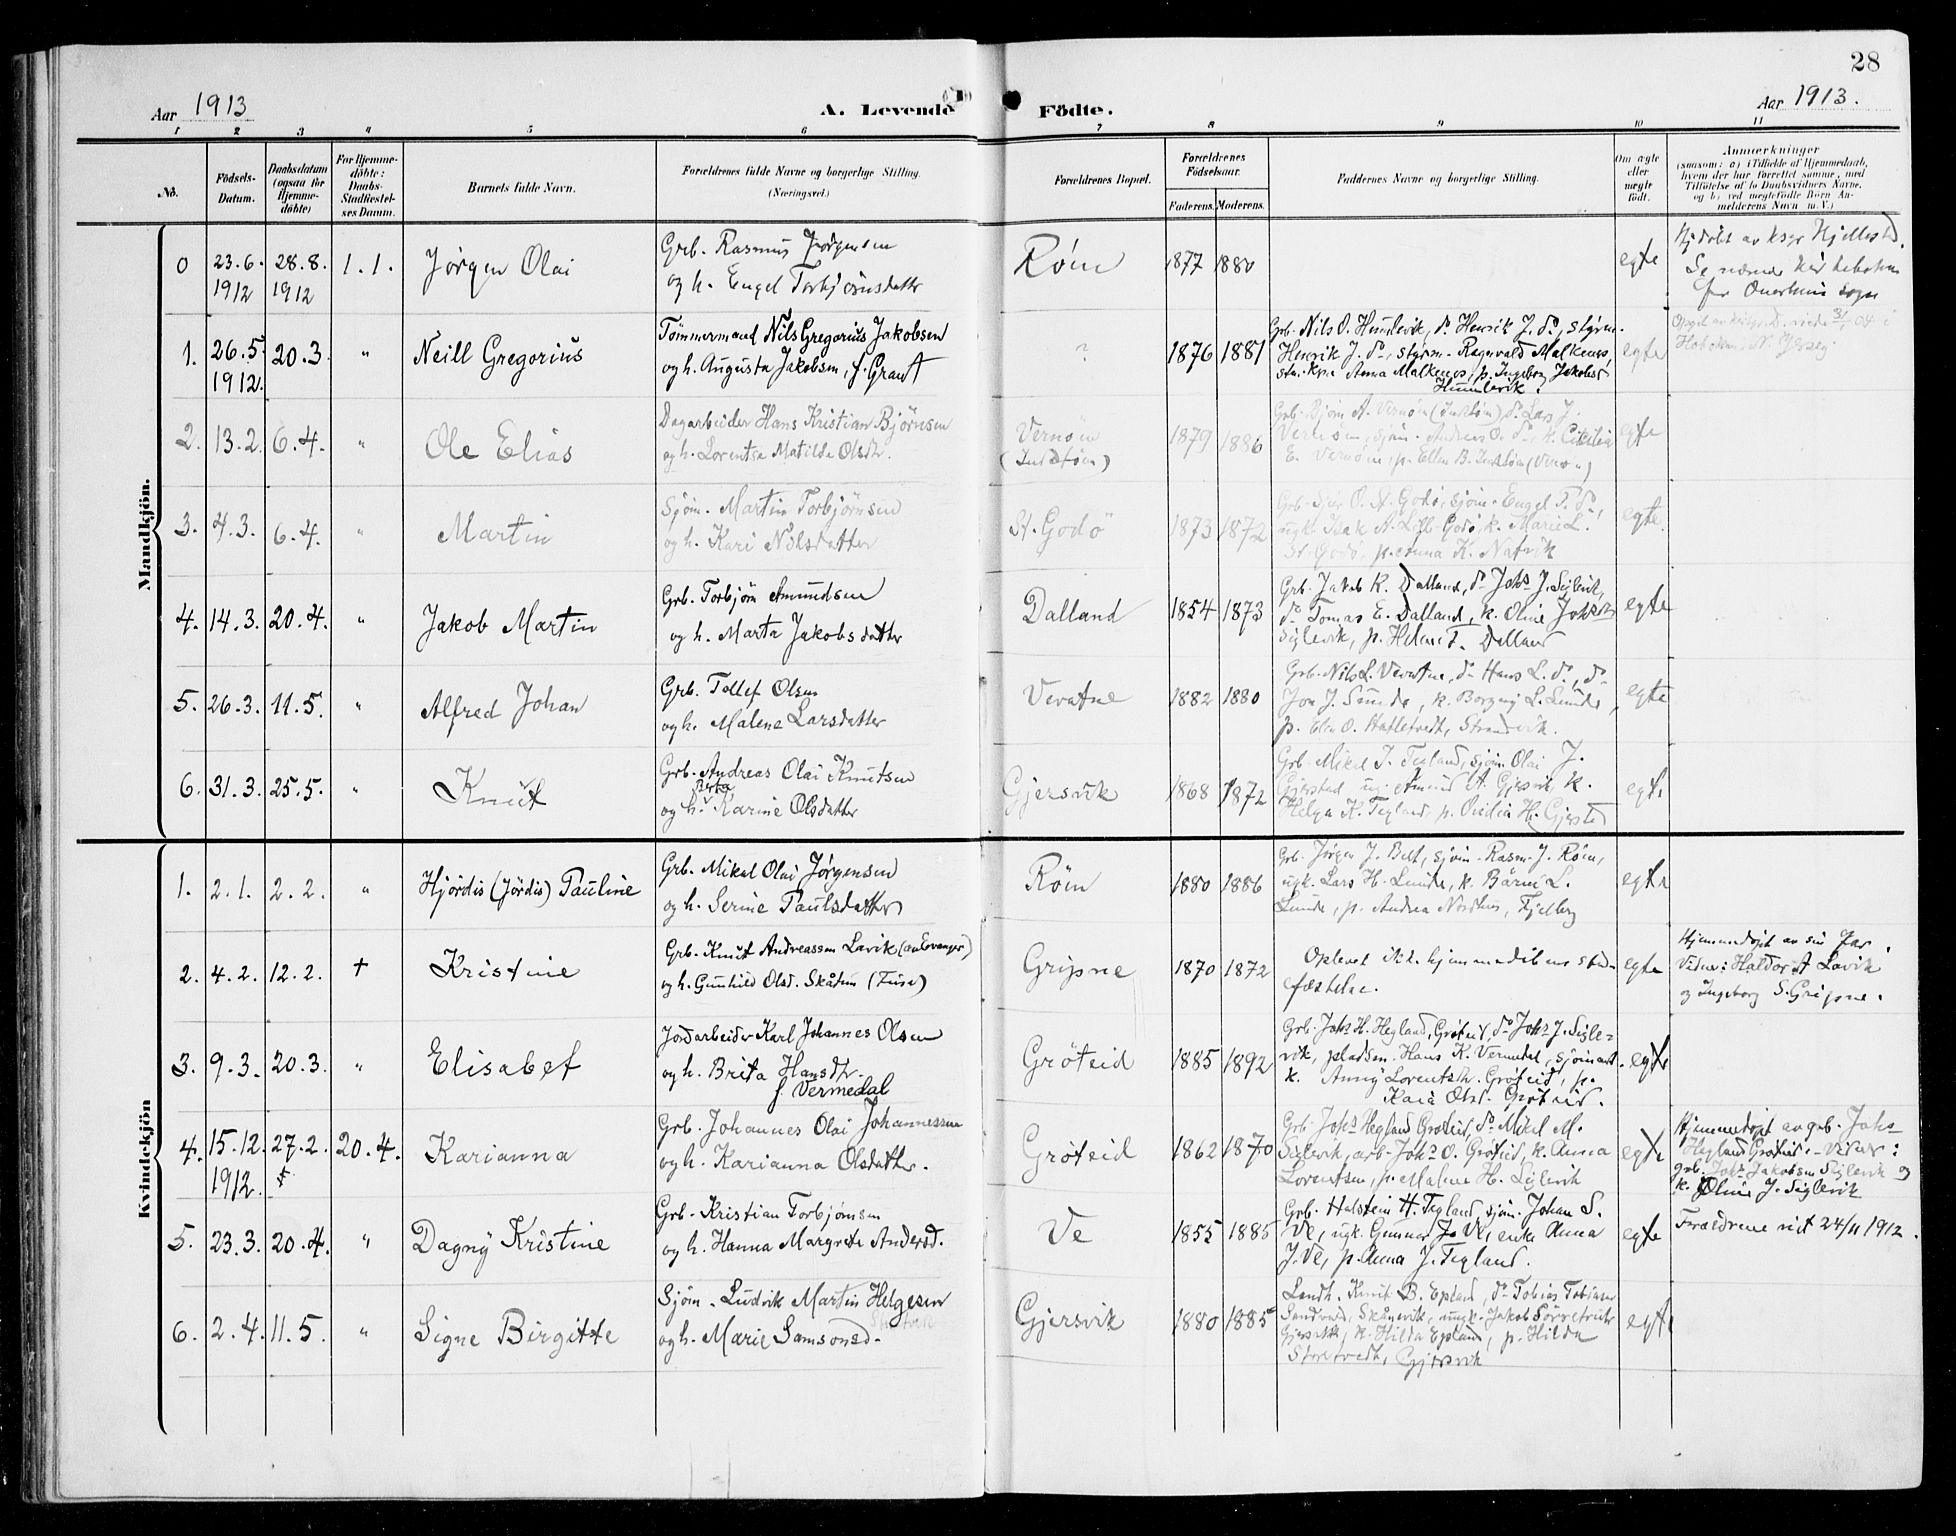 28
Aar 1913
A. Levende Födte.
Aar 1913.
1 2 3 4 5 6 7 8 9 10 11
No.
Födsels-Datum.
Daabsdatum (ogsaa for Hjemme-döbte)
For Hjemme-döbte: Daabs-Stadfæstel-ses Datum.
Barnets fulde Navn.
Forældrenes fulde Navne og borgerlige Stilling.
(Næringsvei.)
Forældrenes Bopæl.
Forældrenes Födselsaar.
Faderens. Moderens.
Faddernes Navne og borgerlige Stilling.
Om ægte eller uægte födt.
Anmærkninger
(saasom: a) i Tilfælde af Hjemmedaab, hvem der har forrettet samme, med Tilföielse af to Daabsvidners Navne, og b) ved uægtefödte Börn An-melderens Navn m. V.)
Mandkjön.
0 23.6. 1912 28.8. 1912 1.1. Jørgen Olai
Grb. Rasmus Jørgensen
og h. Engel Torbjörnsdatter
Røm 1877 1880 egte
1. 26.5. 1912. 20.3. " Neill Gregorius
Tømmermand Nils Gregorius Jakobsen
og h. Augusta Jakobsen, f. Grant
? 1876 1881
Grb. Nils O. Humlevik, do Henrik J. do, styrm.
Henrik J. do, styrm. Ragnvald Malkenes,
Anna Malkenes, p. Ingeborg Jakobsd
Humlevik.
egte
2. 13.2. 6.4. " Ole Elias
Dagarbeider Hans Kristian Bjørnsen
og h. Lorentsa Matilda Olsdtr.
Vernøm
1879 1886
E. Vernøm, p. Ellen B.
egte
3. 4.3. 6.4. " Martin
Sjøm. Martin Torbjørnsen
og h. Kari Nilsdatter
St. Godö 1873 1872
St. Godö. p. Anna K. Natvik
egte.
4. 14.3. 20.4. " Jakob Martin
Grb. Torbjörn Amundsen
og h. Marta Jakobsdatter
Dalland 1854 1873
Grb. Jakob K. Dalland, do Johs J. Siglevik,
do Tomas E. Dalland, k. Oline Johsdtr
Siglevik, p. Helene T. Dalland
egte
5. 26.3. 11.5. " Alfred Johan
Grb. Tollef Olsen
og h. Malene Larsdatter
Veratne 1882 1880
Grb. Nils L. Veratne, do Hans L. do, do
Jon J. Sunde, k. Borgny L. Sunde,
p. Elen O. Hatletvedt, Strandvik.
egte
6. 31.3. 25.5. " Knut
Grb. Andreas Olai Knutsen
og h. Berta Karine Olsdatter
Gjersvik 1868 1872
Grb. Mikal J. Tegland, sjöm. Olai J.
Gjerstad, ug. Amund A. Gjersvik, k.
Helga K. Tegland, p. Ovidia H. Gjersted
egte
Kvindekjön
1. 2.1. 2.2. " Hjördis (Jördis) Pauline
Grb. Mikal Olai Jørgensen
og h. Serine Paulsdatter
Røm 1880 1886
Grb. Jørgen J. Bolt, sjöm. Rasm. J. Røm,
ugk. Lars H. Lunde, k. Bårni L.
Lunde, p. Andrea Nordhus, Fjelberg
egte
2. 4.2. 12.2. † Kristine
Grb. Knut Andreassen Lavik (av Evanger)
og h. Gunhild Olsd. Skåtun (Fuse)
Gripne 1870 1872
Oplevet ikke hjemmedåbens stad-
fæstelse.
egte
Hjemmedøpt av sin far.
Vidner: Haldor A Lavik
og Ingeborg S. Gripne.
3. 9.3. 20.3. " Elisabet
Jordarbeider Karl Johannes Olsen
og h. Brita Hansdtr.
f. Vermedal
Gröteid 1885 1892
Grb. Johs H. Hegland, Gröteid, do Johs J. Sigle-
vik, pladsm. Hans K. Vermedal,
k. Anny Lorentsdtr. Gröteid, p.
Kaia Olsd. Gröteid.
egte
4. 15.12. 1912. 27.2. 20.4. Karianna
Grb. Johannes Olai Johannessen
og h. Karianna Olsdatter.
Gröteid 1862 1870
Grb. Johs Hegland Gröteid, do Mikal M.
Siglevik, arb. Johs O. Gröteid, k. Anna
Lorentsen, p. Malene H. Siglevik
egte
Hjemmedøpt av grb. Johs
Hegland Gröteid. – Vidner:
grb. Johs Jakobsen Siglevik og
k. Oline J. Siglevik
5. 23.3. 20.4. " Dagny Kristine
Grb. Kristian Torbjørnsen
og h. Hanna Margrete Andersd.
Ve 1855 1885
Grb. Halstein H. Tegland, sjöm. Johan S.
Ve, ugk. Gunnar J. Ve, enke Anna
J. Ve, p. Anna J. Tegland.
egte
Forældrene viet 24/11 1912.
6. 2.4. 11.5. " Signe Birgitte
Sjöm. Ludvik Martin Helgesen
og h. Marie Samsonsd.
Gjersvik 1880 1885
Landh. Knut B. Epland, do Tobias Tobiassen
Sandvold, Skånevik, ungk. Jakob
Gjersvik, k. Hilda Epland, p. Hilda
Storetvedt, Gjersvik
egte